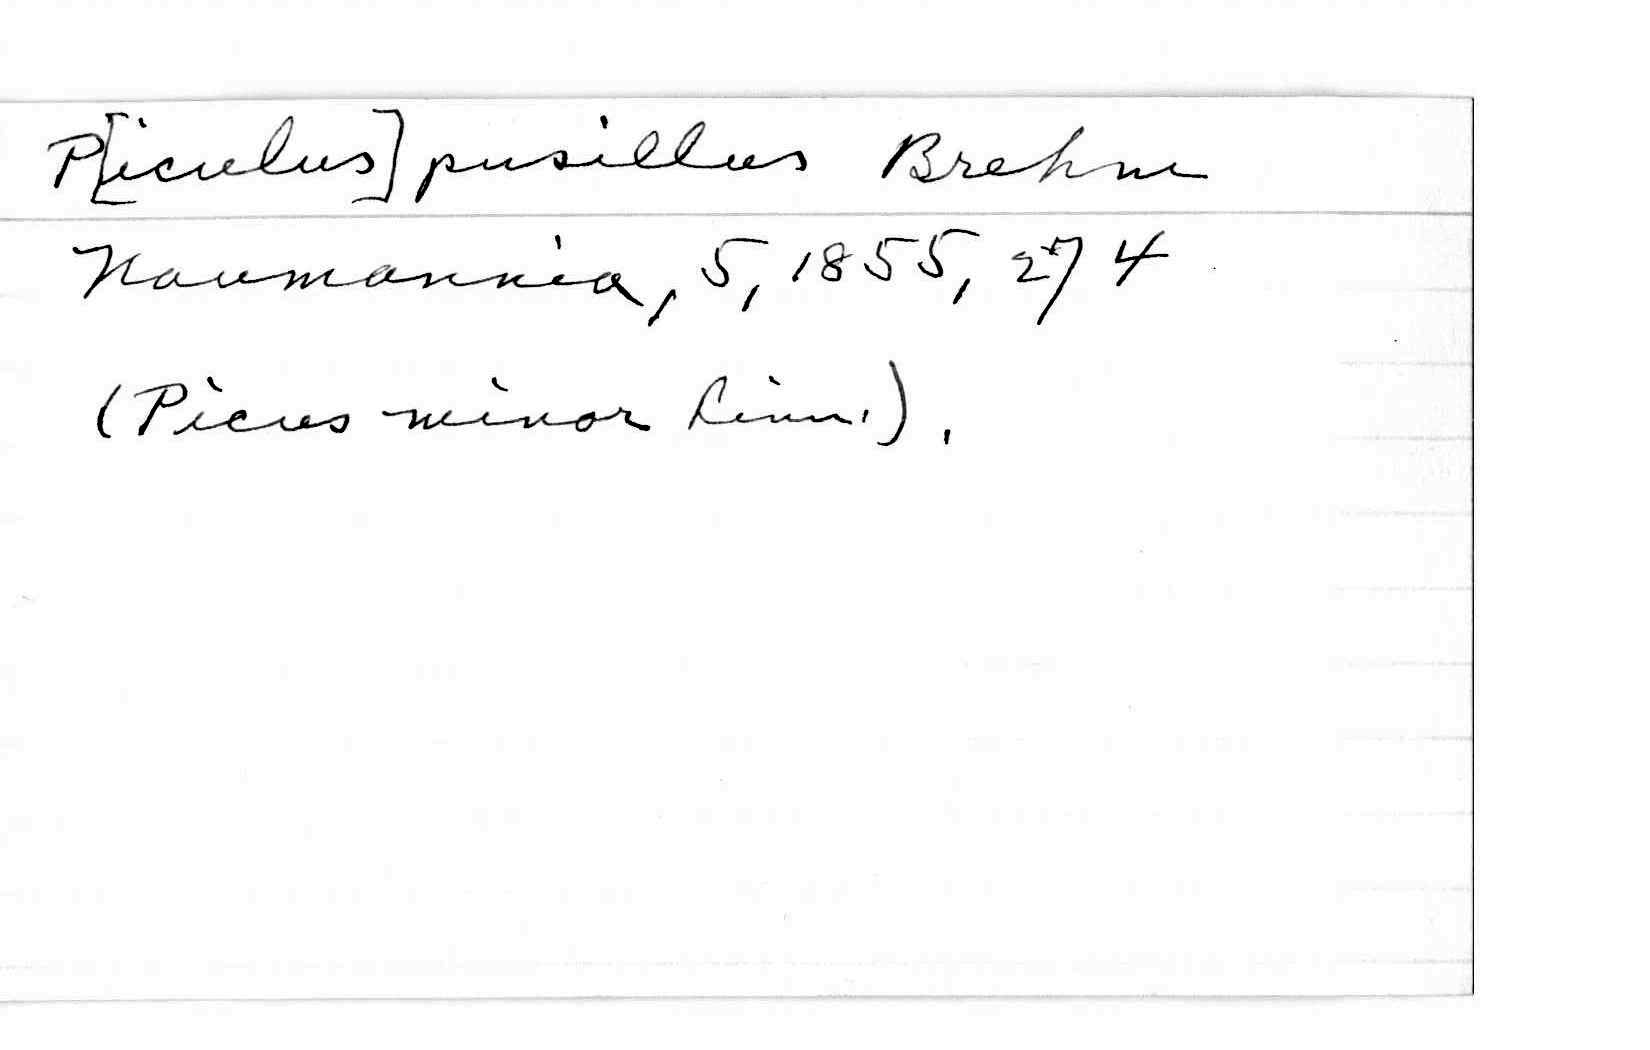 P[iculus] pusillus Brehm
Naumannia, 5, 1855, 274
(Picus minor Linn.).